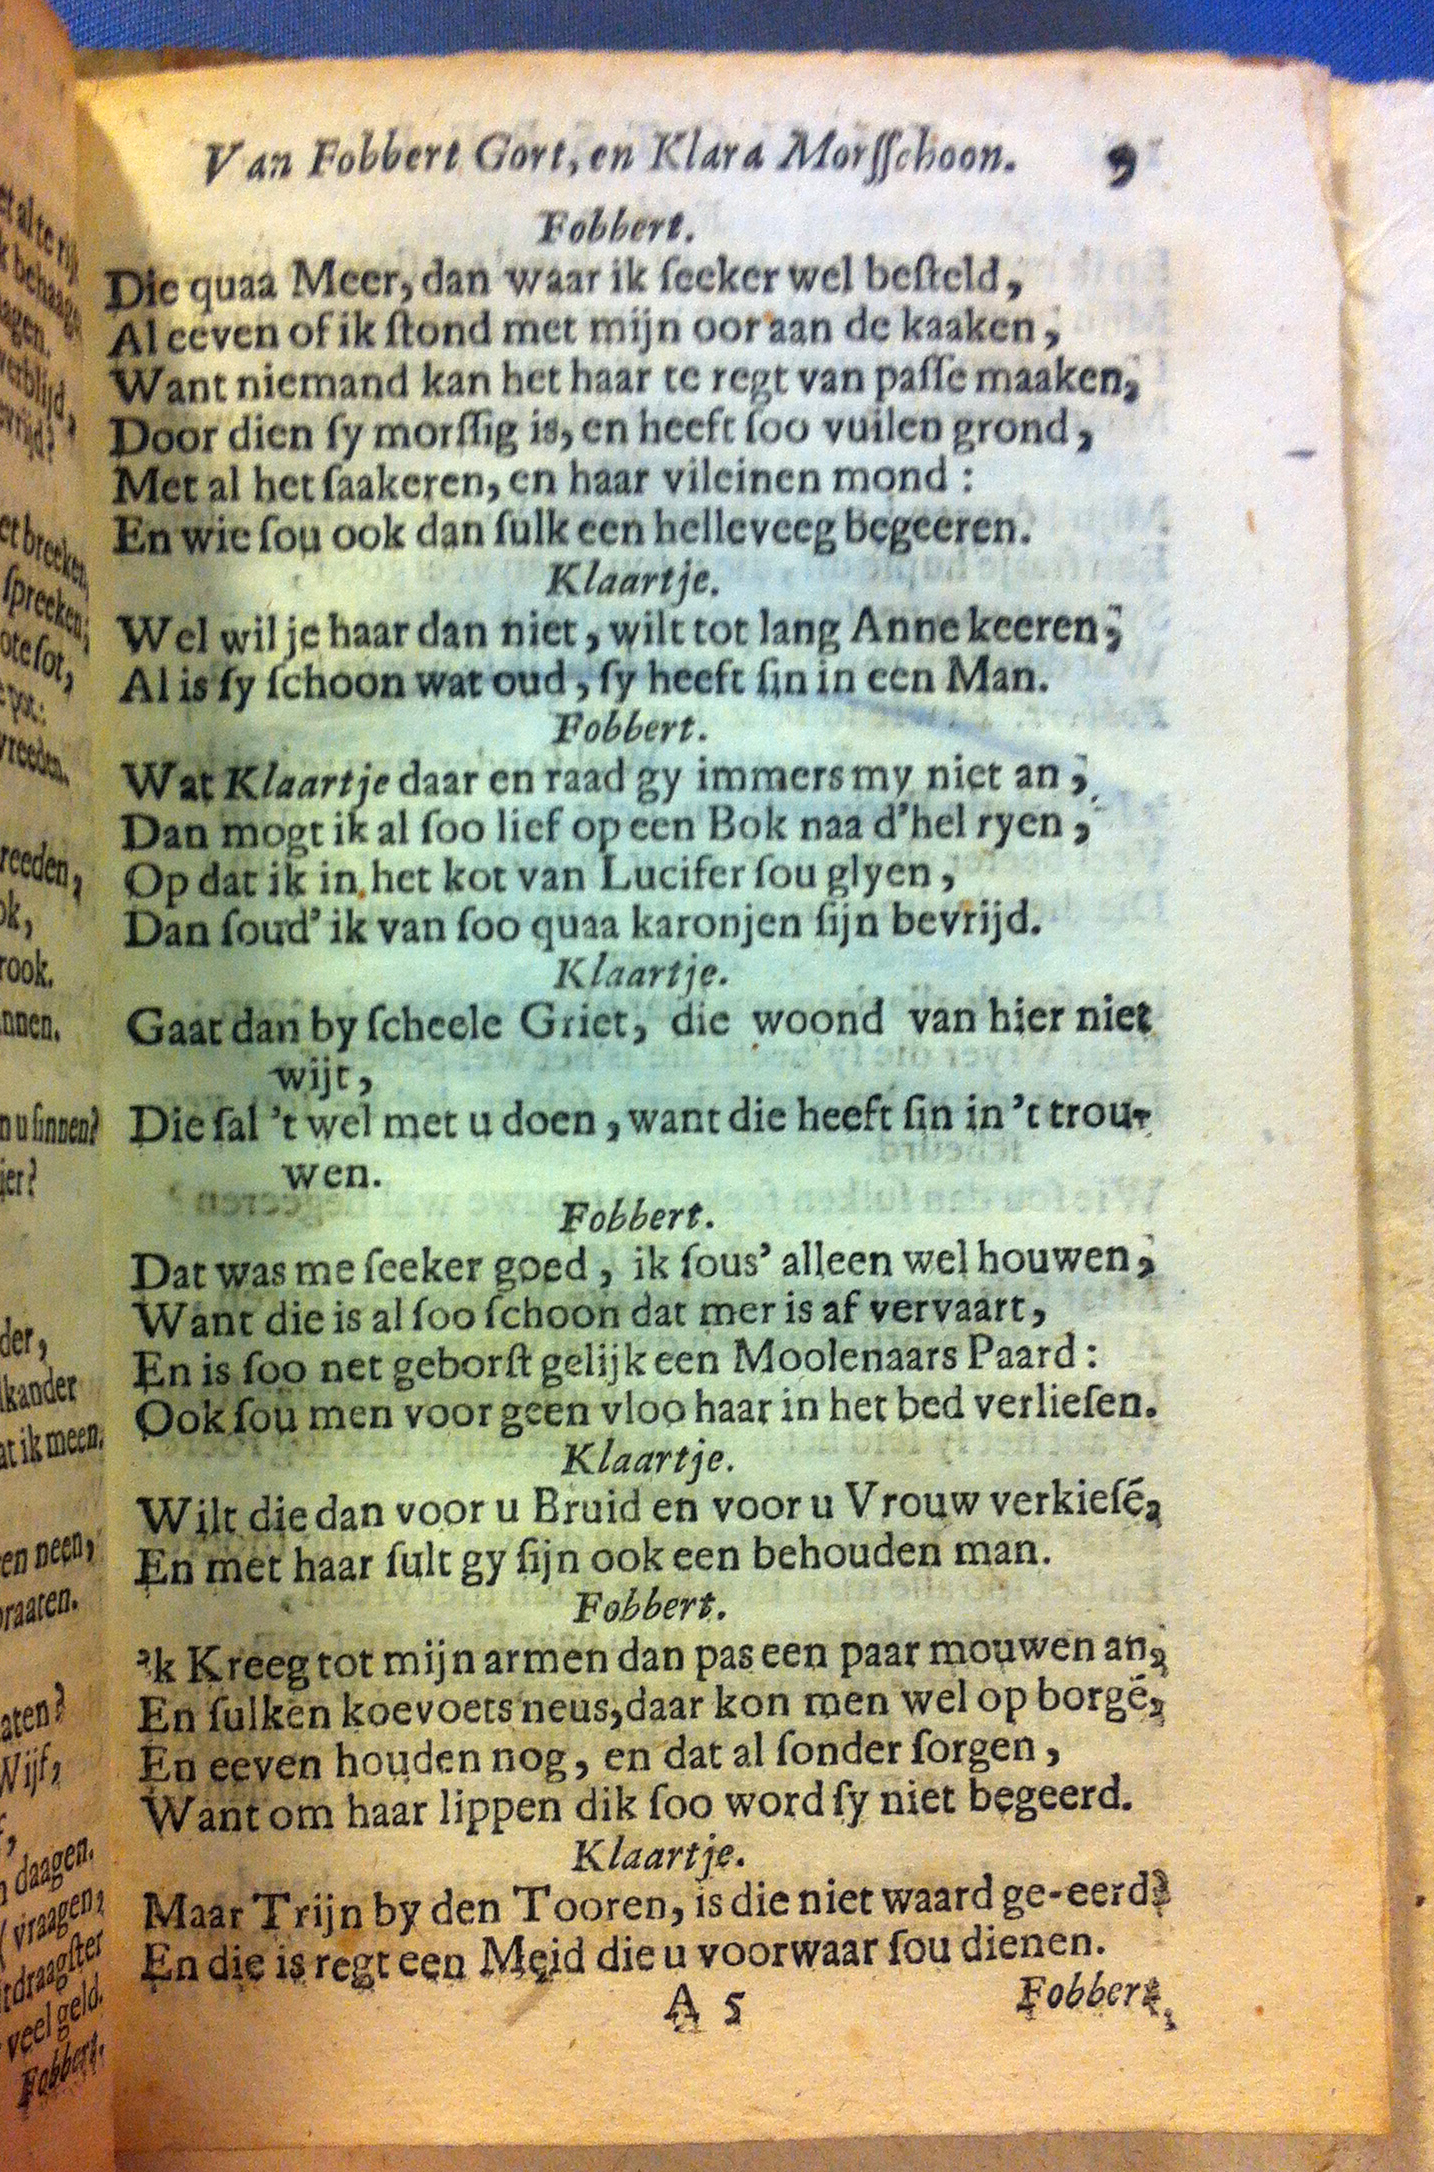 Van Fobbert Gort, en Klara Morsſchoon. 9
Fobbert.
Die quaa Meer, dan waar ik ſeeker wel beſteld,
Al eeven of ik ſtond met mijn oor aan de kaaken,
Want niemand kan het haar te regt van paſſe maaken,
Door dien ſy morſſig is, en heeft ſoo vuilen grond,
Met al het ſaakeren, en haar vileinen mond:
En wie ſou ook dan ſulk een helleveeg begeeren.
Klaartje.
Wel wil je haar dan niet, wilt tot lang Anne keeren,
Al is ſy ſchoon wat oud, ſy heeft ſin in een Man.
Fobbert.
Wat Klaartje daar en raad gy immers my niet an,
Dan mogt ik al ſoo lief op een Bok naa d'hel ryen,
Op dat ik in het kot van Lucifer ſou glyen,
Dan ſoud' ik van ſoo quaa karonjen ſijn bevrijd.
Klaartje.
Gaat dan by ſcheele Griet, die woond van hier niet
wijt,
Die ſal 't wel met u doen, want die heeft ſin in 't trou-
wen.
Fobbert.
Dat was me ſeeker goed, ik ſous' alleen wel houwen,
Want die is al ſoo ſchoon dat mer is af vervaart,
En is ſoo net geborſt gelijk een Moolenaars Paard:
Ook ſou men voor geen vloo haar in het bed verlieſen.
Klaartje.
Wilt die dan voor u Bruid en voor u Vrouw verkieſē,
En met haar ſult gy ſijn ook een behouden man.
Fobbert.
'k Kreeg tot mijn armen dan pas een paar mouwen an,
En ſulken koevoets neus, daar kon men wel op borgē,
En eeven houden nog, en dat al ſonder ſorgen,
Want om haar lippen dik ſoo word ſy niet begeerd.
Klaartje.
Maar Trijn by den Tooren, is die niet waard ge-eerd?
En die is regt een Meid die u voorwaar ſou dienen.
A 5 Fobbert,
et breeken,
ſpreeken;
ote ſot,
vreeden.
reeden,
ok,
rook.
nnen.
n u ſinnen?
ier?
der,
lkander
at ik meen.
en neen,
praaten.
aten?
Wijf,
n daagen.
vraagen,
tdraagſter
veel geld.
Fobbert.